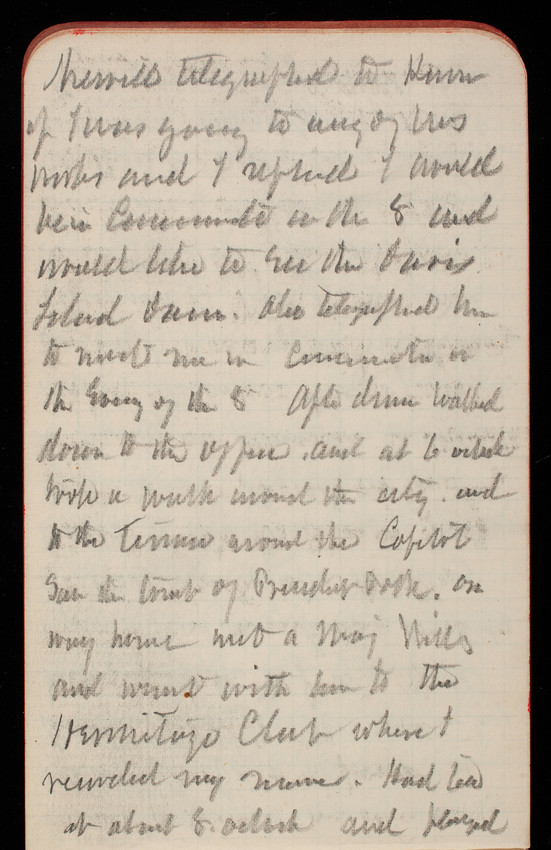 Merrill telegraphed to know
if I was going to any of his
works and I replied I would
be in Cincinnati on the 8 and
would like to see the Davis
Island Dam. Also telegraphed him
to meet me in Cincinnati on
the Eveng of the 8 After dinner walked
down to the office and at 6 oclock
took a walk around the city and
to the Terrace around the Capitol
Saw the tomb of President Polk. on
way home met a Maj
and went with him to the
Hermitage Club where I
recorded my name. Had tea
at about 8. oclock and played